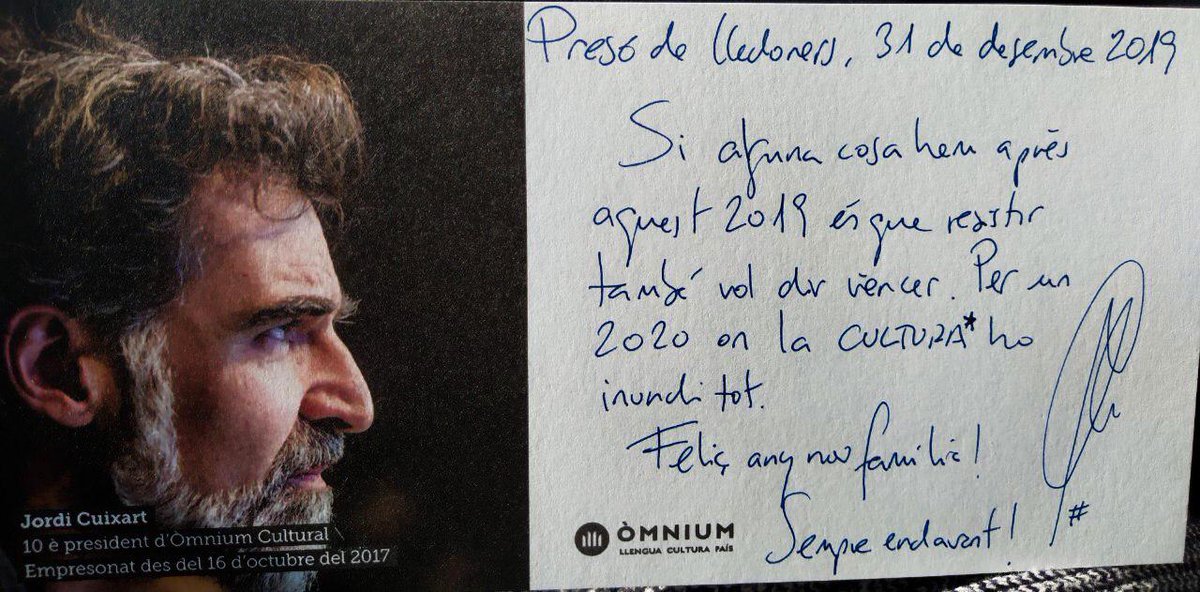 Presó de Lledoners, 31 de desembre 2019
Si alguna cosa hem après
aquest 2019 és que resistir
també vol dir vèncer. Per un
2020 on la CULTURA* ho
inundi tot.
Feliç any nou família!
Sempre endavant!
#
ÒMNIUM
LLENGUA CULTURA PAÍS
Jordi Cuixart
10 è president d'Òmnium Cultural \
Empresonat des del 16 d'octubre del 2017